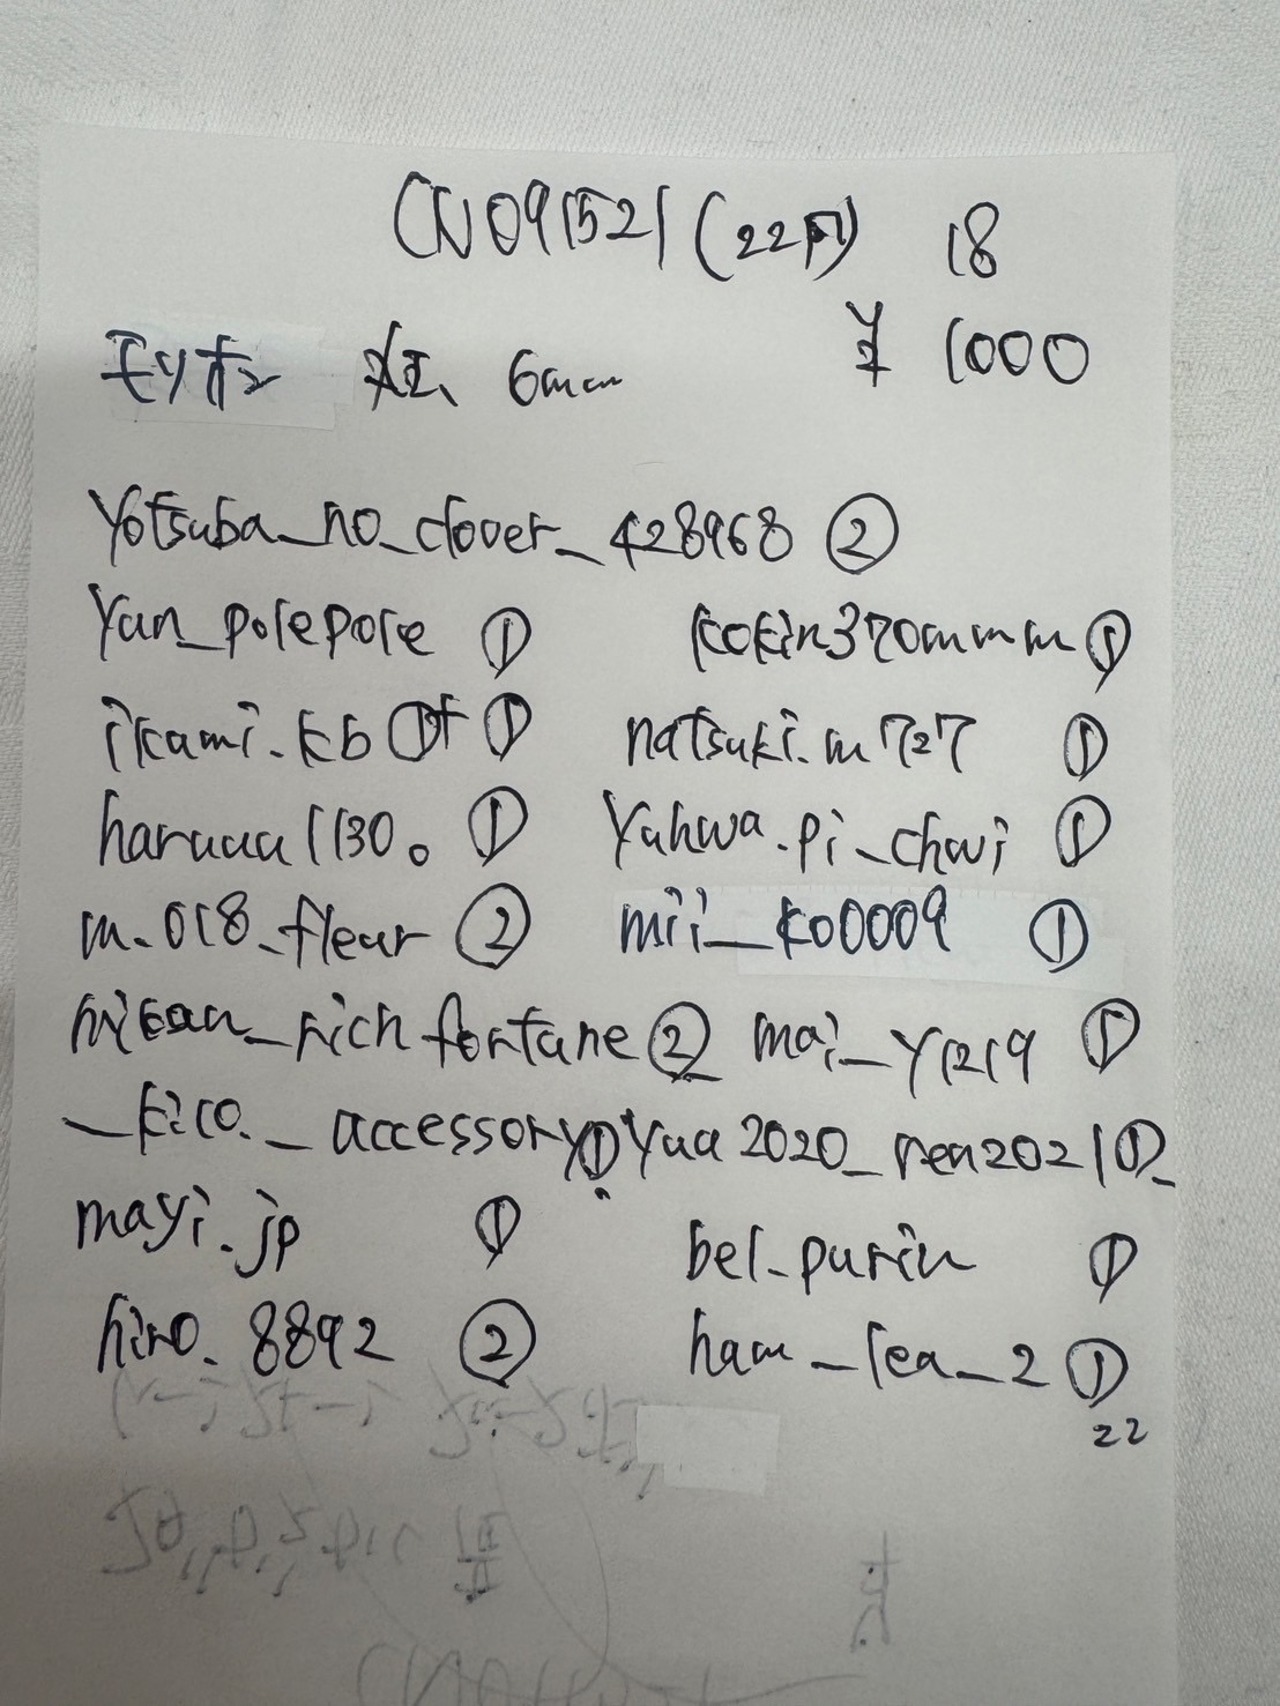 CN091521 (22円) 18
¥ 1000
6mm
yotsuba_no_clover_428968 ②
yan_polepole ① kokin370mmm ①
ikami.kb ① natsuki.m727 ①
haruuu1130。 ① yuhwa.pi_chui ①
m_018_fleur ② mii_ko0009 ①
mikan_richfortune ② mai_y1219 ①
_kico._accessory ① yua2020_rea2021 ①
mayi.jp ① bel_purin ①
hiro_8892 ② ham_lea_2 ①
22